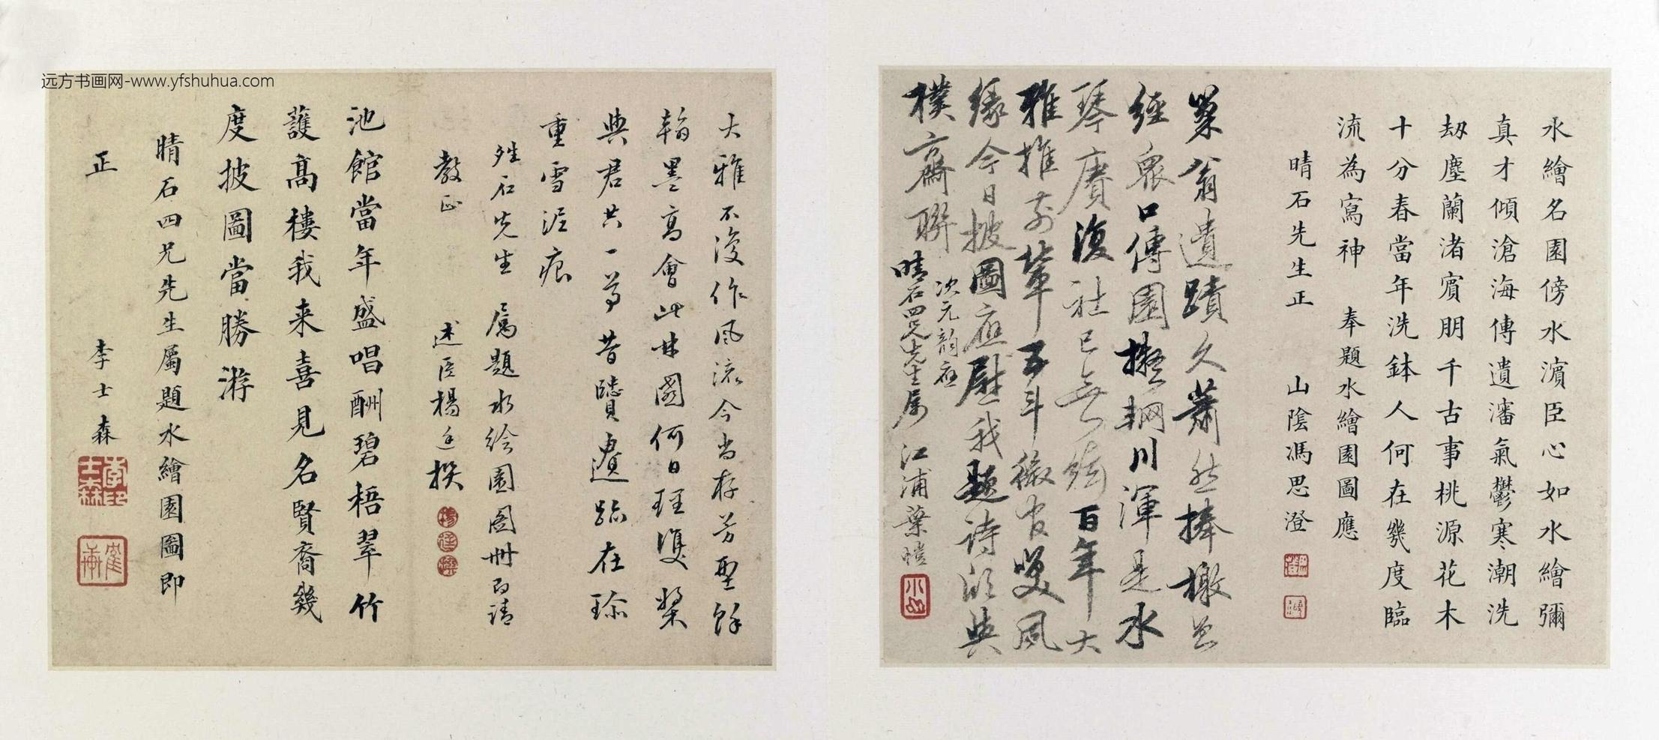 水繪名園傍水濱臣心如水繪彌
真才傾滄海傳遺瀋氣鬱寒潮洗
劫塵蘭渚賓朋千古事桃源花木
十分春當年洗鉢人何在幾度臨
流為寫神 奉題水繪園圖應
晴石先生正 山陰馮思澄
巢翁遺蹟久蕭然捧檄曾
經眾口傳園擬輞川渾是水
琴賡復社已無絃百年大
雅推前輩五斗微官嘆風
緣今日披圖應慰我題詩欣與
樸齋聯 次元韻應
晴石四兄先生屬 江浦葉愷
大雅不復作風流今尚存芳型餘
翰墨高會此林園何日理雙槳
與君共一尊昔賢遺跡在珎
重雪泥痕
晴石先生屬題水绘園圖冊即請
教正 述臣楊廷撰
池館當年盛唱酬碧梧翠竹
護高樓我来喜見名賢裔幾
度披圖當勝游
晴石四兄先生屬題水繪園圖即
正 李士森
李士森印
远方书画网-www.yfshuhua.com